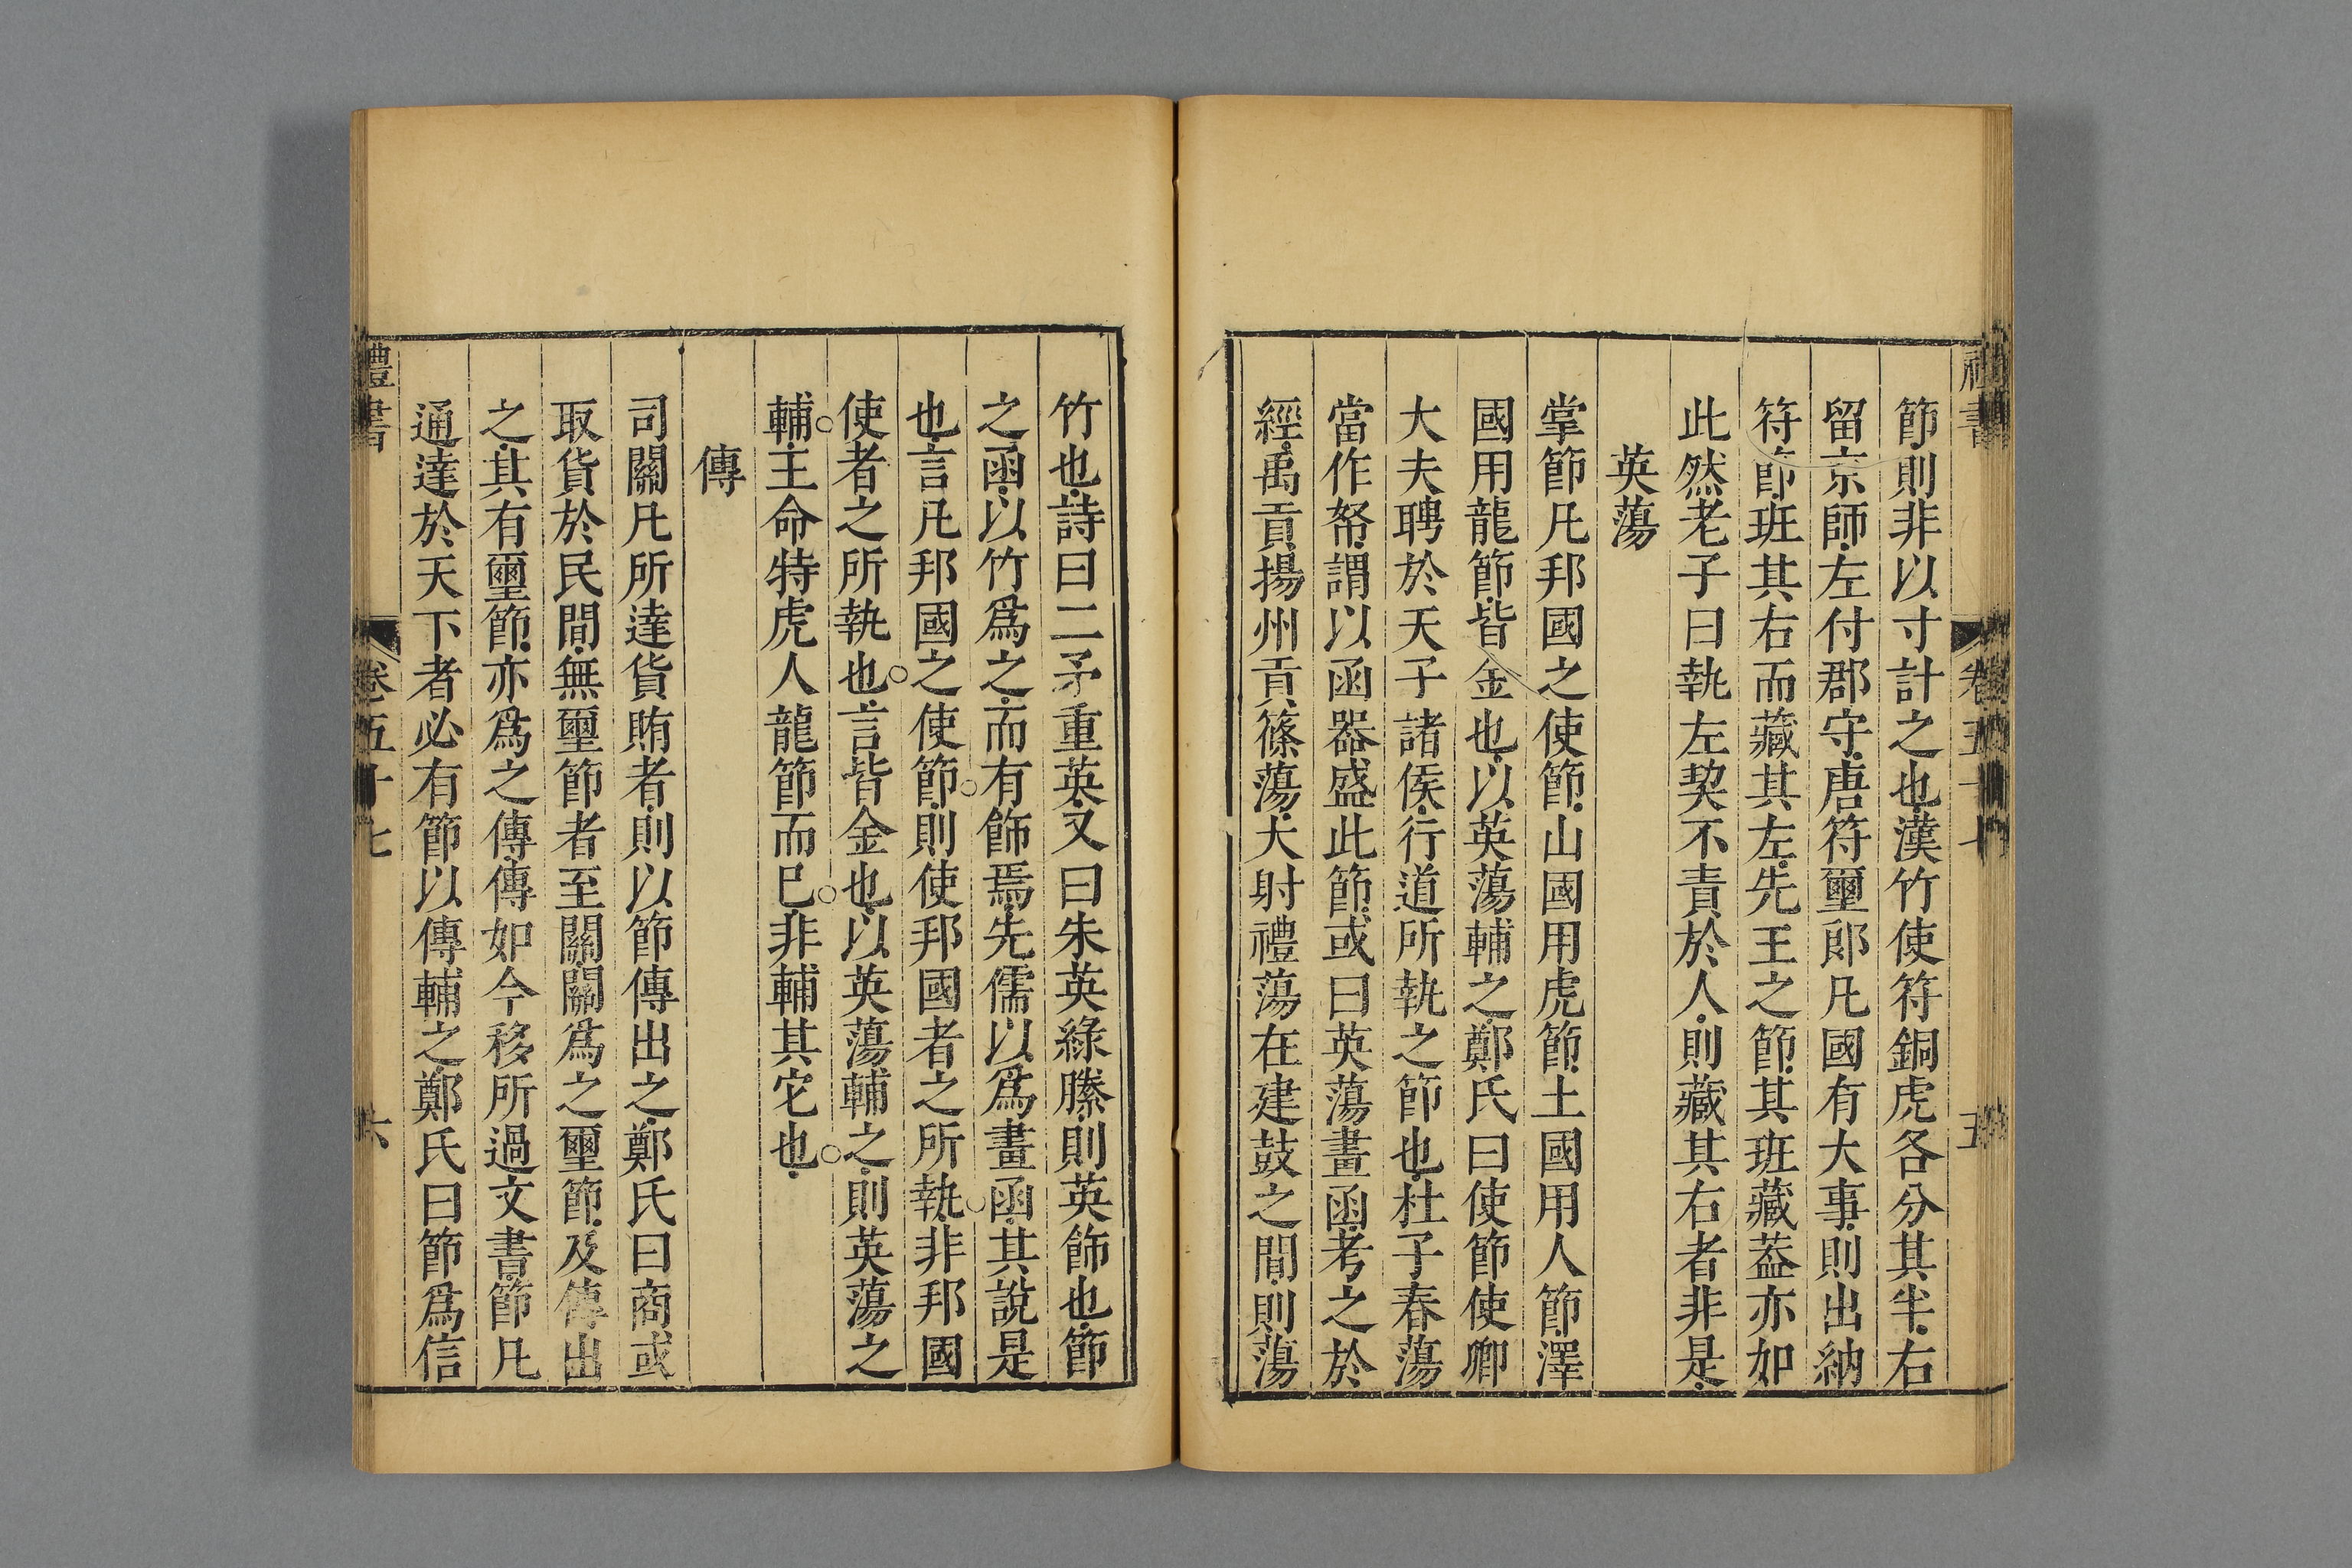 禮書
卷五十七
五
節則非以寸計之也漢竹使符銅虎各分其半右
留京師左付郡守唐符璽郎凡國有大事則出納
符節班其右而藏其左先王之節其班藏葢亦如
此然老子曰執左契不責於人則藏其右者非是
英蕩
掌節凡邦國之使節山國用虎節土國用人節澤
國用龍節皆金也以英蕩輔之鄭氏曰使節使卿
大夫聘於天子諸侯行道所執之節也杜子春蕩
當作帑謂以函器盛此節或曰英蕩畫函考之於
經禹貢揚州貢篠蕩大射禮蕩在建鼓之間則蕩
竹也詩曰二矛重英又曰朱英綠縢則英飾也節
之函以竹爲之而有飾焉先儒以爲畫函其說是
也言凡邦國之使節則使邦國者之所執非邦國
使者之所執也言皆金也以英蕩輔之則英蕩之
輔王命特虎人龍節而已非輔其它也
傳
司關凡所達貨賄者則以節傳出之鄭氏曰商或
取貨於民間無璽節者至關關爲之璽節及傳出
之其有璽節亦爲之傳傳如今移所過文書節凡
通達於天下者必有節以傳輔之鄭氏曰節爲信
禮書
卷五十七
六